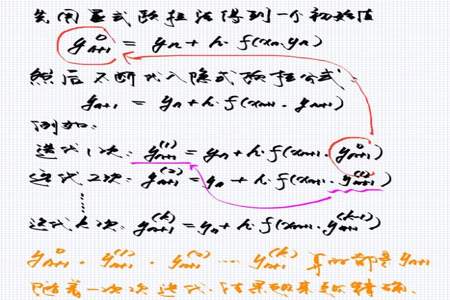 先用显式欧拉法得到一个初始值
y⁰ₙ₊₁ = yₙ + h·f(xₙ, yₙ)
然后不断代入隐式欧拉公式:
yₙ₊₁ = yₙ + h·f(xₙ₊₁, yₙ₊₁)
例如:
迭代1次: yₙ₊₁⁽¹⁾ = yₙ + h·f(xₙ₊₁, y⁰ₙ₊₁)
迭代2次: yₙ₊₁⁽²⁾ = yₙ + h·f(xₙ₊₁, yₙ₊₁⁽¹⁾)
⋮
迭代k次: yₙ₊₁⁽ᵏ⁾ = yₙ + h·f(xₙ₊₁, yₙ₊₁⁽ᵏ⁻¹⁾)
y⁰ₙ₊₁, yₙ₊₁⁽¹⁾, yₙ₊₁⁽²⁾ ⋯ yₙ₊₁⁽ᵏ⁾ 其实都是 yₙ₊₁
随着一次次迭代,结果越来越精确.